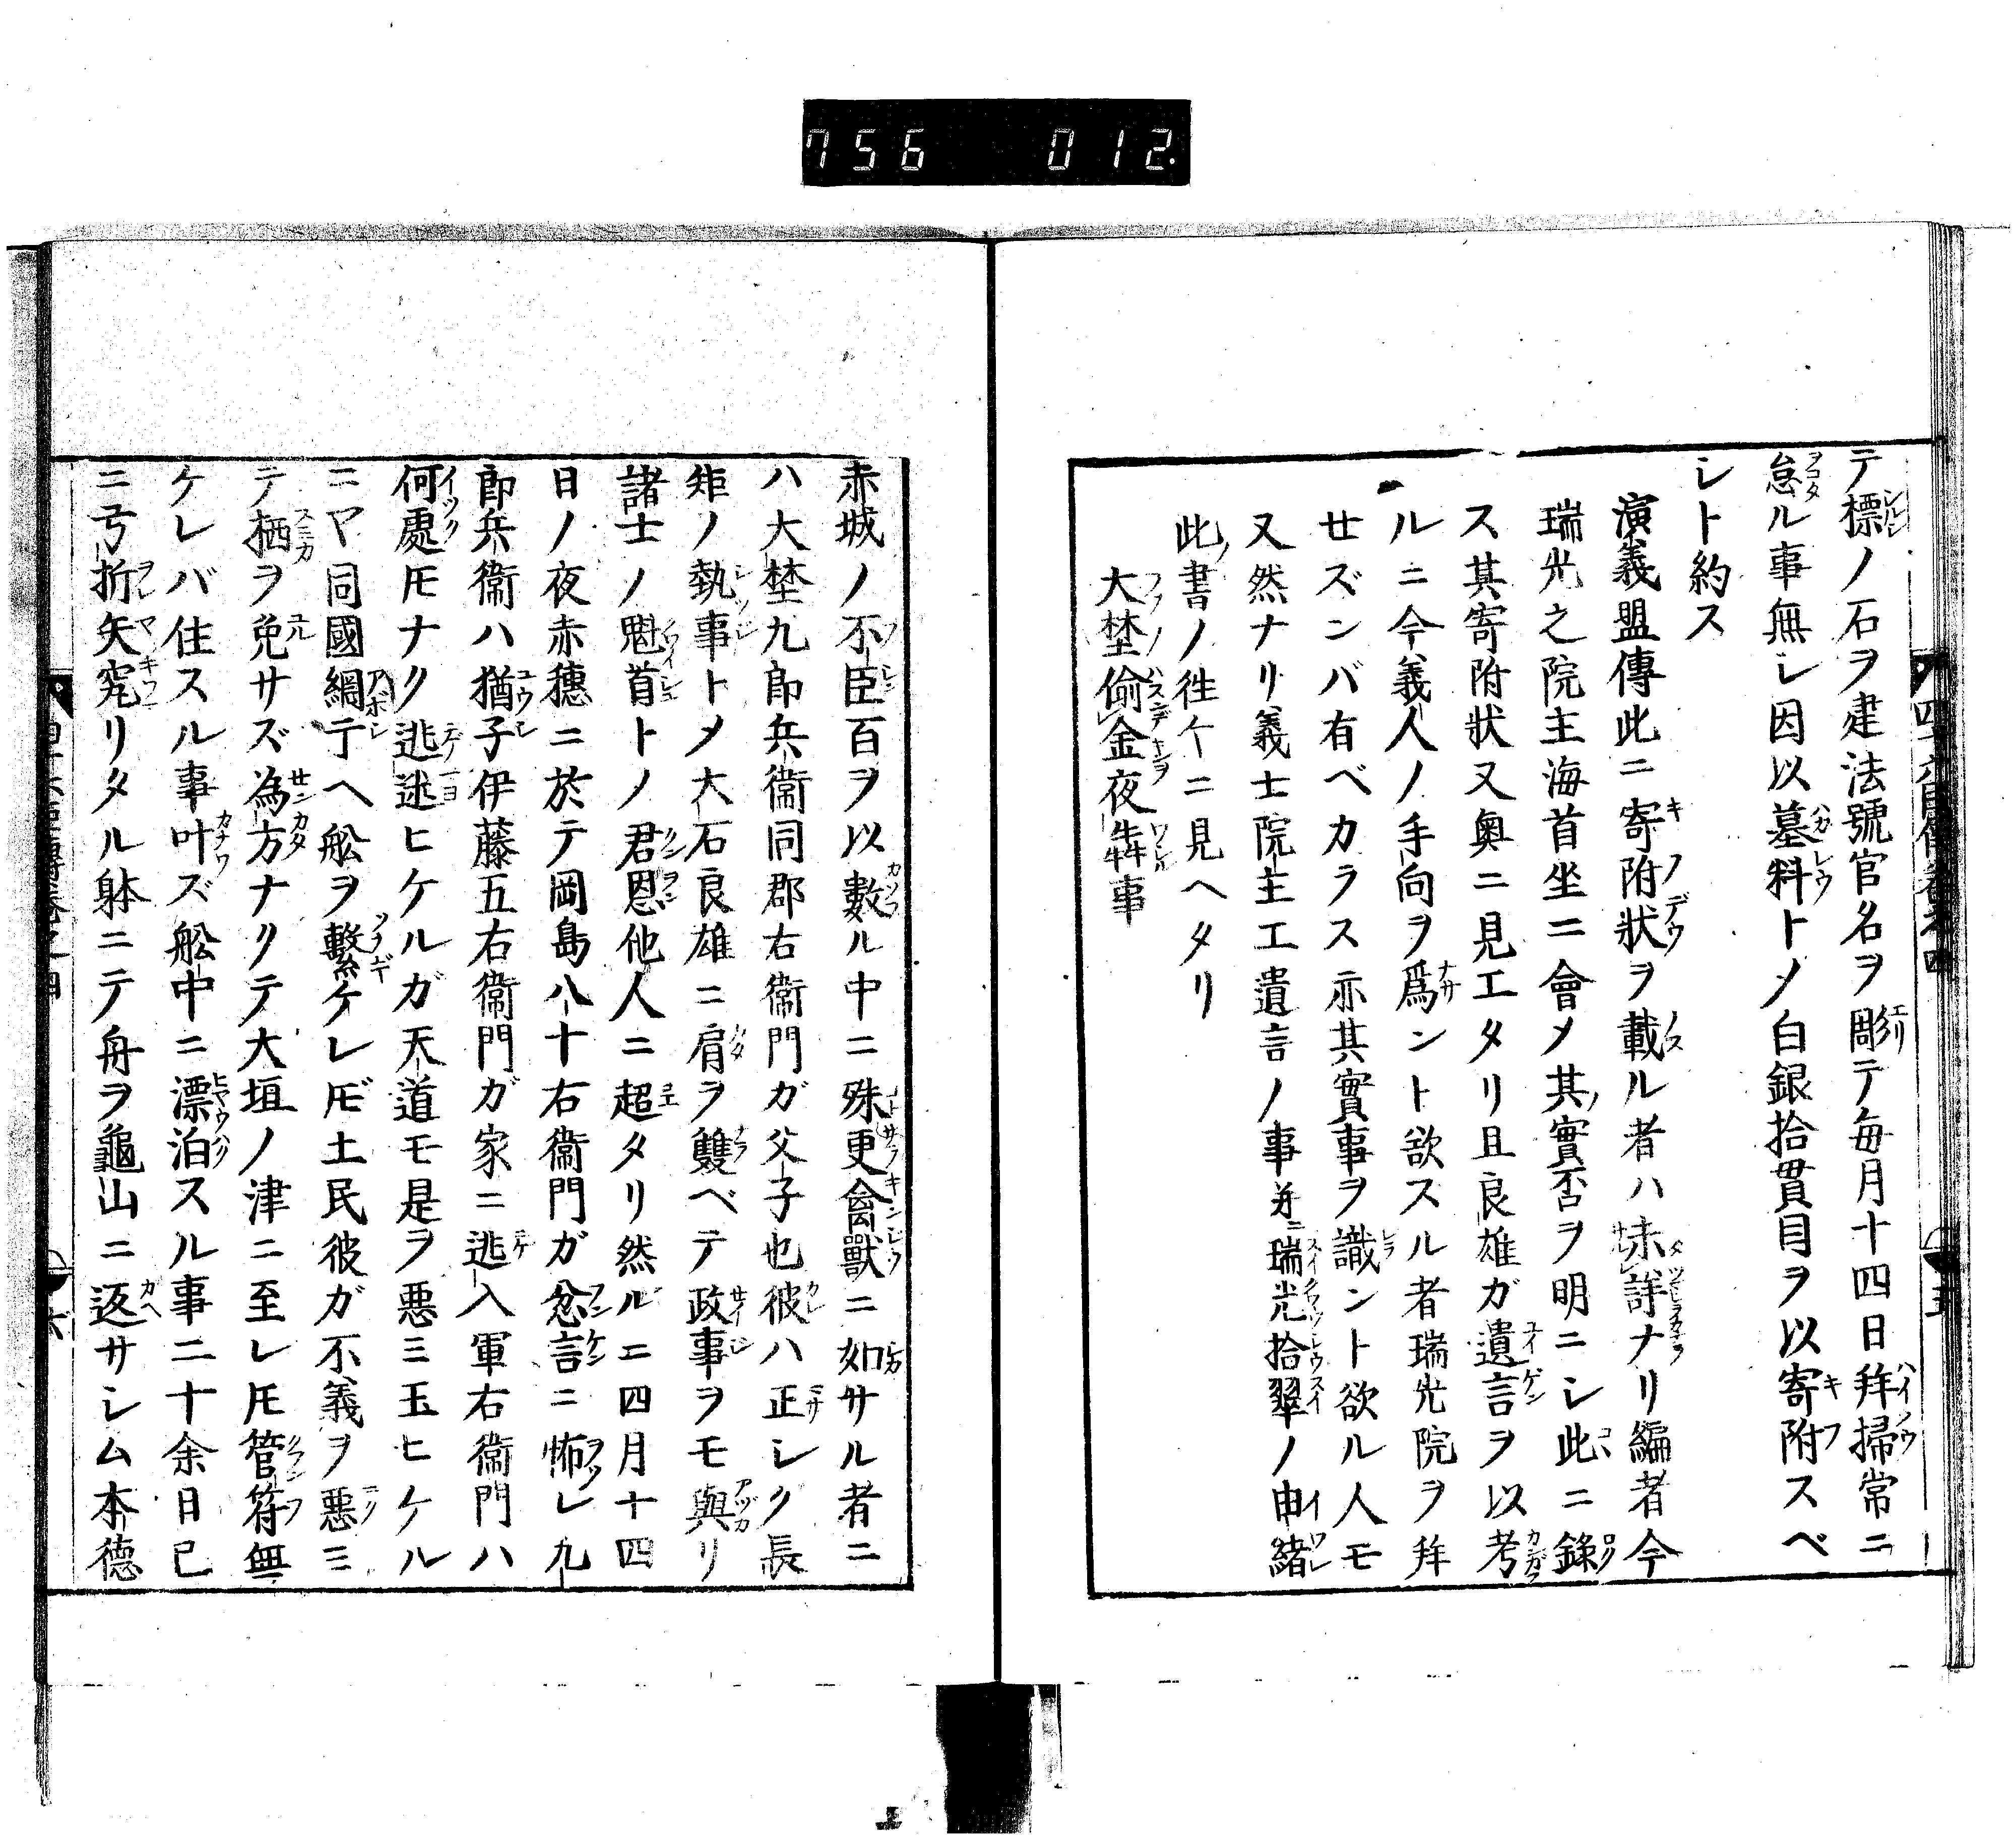 756 012.
テ標ノ石ヲ建法號官名ヲ彫テ毎月十四日拜掃常ニ
怠ル事無レ因以墓料トメ白銀拾貫目ヲ以寄附スベ
シト約ス
演義盟傳此ニ寄附狀ヲ載ル者ハ未詳ナリ編者今
瑞光之院主海首坐ニ會メ其實否ヲ明ニシ此ニ錄
ス其寄附狀又奥ニ見エタリ且良雄ガ遺言ヲ以考
ルニ今義人ノ手向ヲ爲ント欲スル者瑞光院ヲ拜
せズンバ有ベカラス亦其實事ヲ識ント欲ル人モ
又然ナリ義士院主エ遺言ノ事并ニ瑞光拾翠ノ由緒
此書ノ徃々ニ見ヘタリ
大埜偷金夜犇事
赤城ノ不臣百ヲ以數ル中ニ殊更禽獸ニ如サル者ニ
ハ大埜九郎兵衞同郡右衞門ガ父子也彼ハ正シク長
矩ノ執事トメ大石良雄ニ肩ヲ雙ベテ政事ヲモ與リ
諸士ノ魁首トノ君恩他人ニ超タリ然ルニ四月十四
日ノ夜赤穗ニ於テ岡島八十右衞門ガ忿言ニ怖レ九
郎兵衞ハ猶子伊藤五右衞門ガ家ニ逃入軍右衞門ハ
何處𪜈ナク逃迯ヒケルガ天道モ是ヲ悪ミ玉ヒケル
ニヤ同國網干ヘ舩ヲ繋ケレ𪜈土民彼ガ不義ヲ悪ミ
テ栖ヲ免サズ為方ナクテ大垣ノ津ニ至レ𪜈管符無
ケレバ住スル事叶ズ舩中ニ漂泊スル事二十余日已
ニ弓折矢究リタル躰ニテ舟ヲ龜山ニ返サシム本德